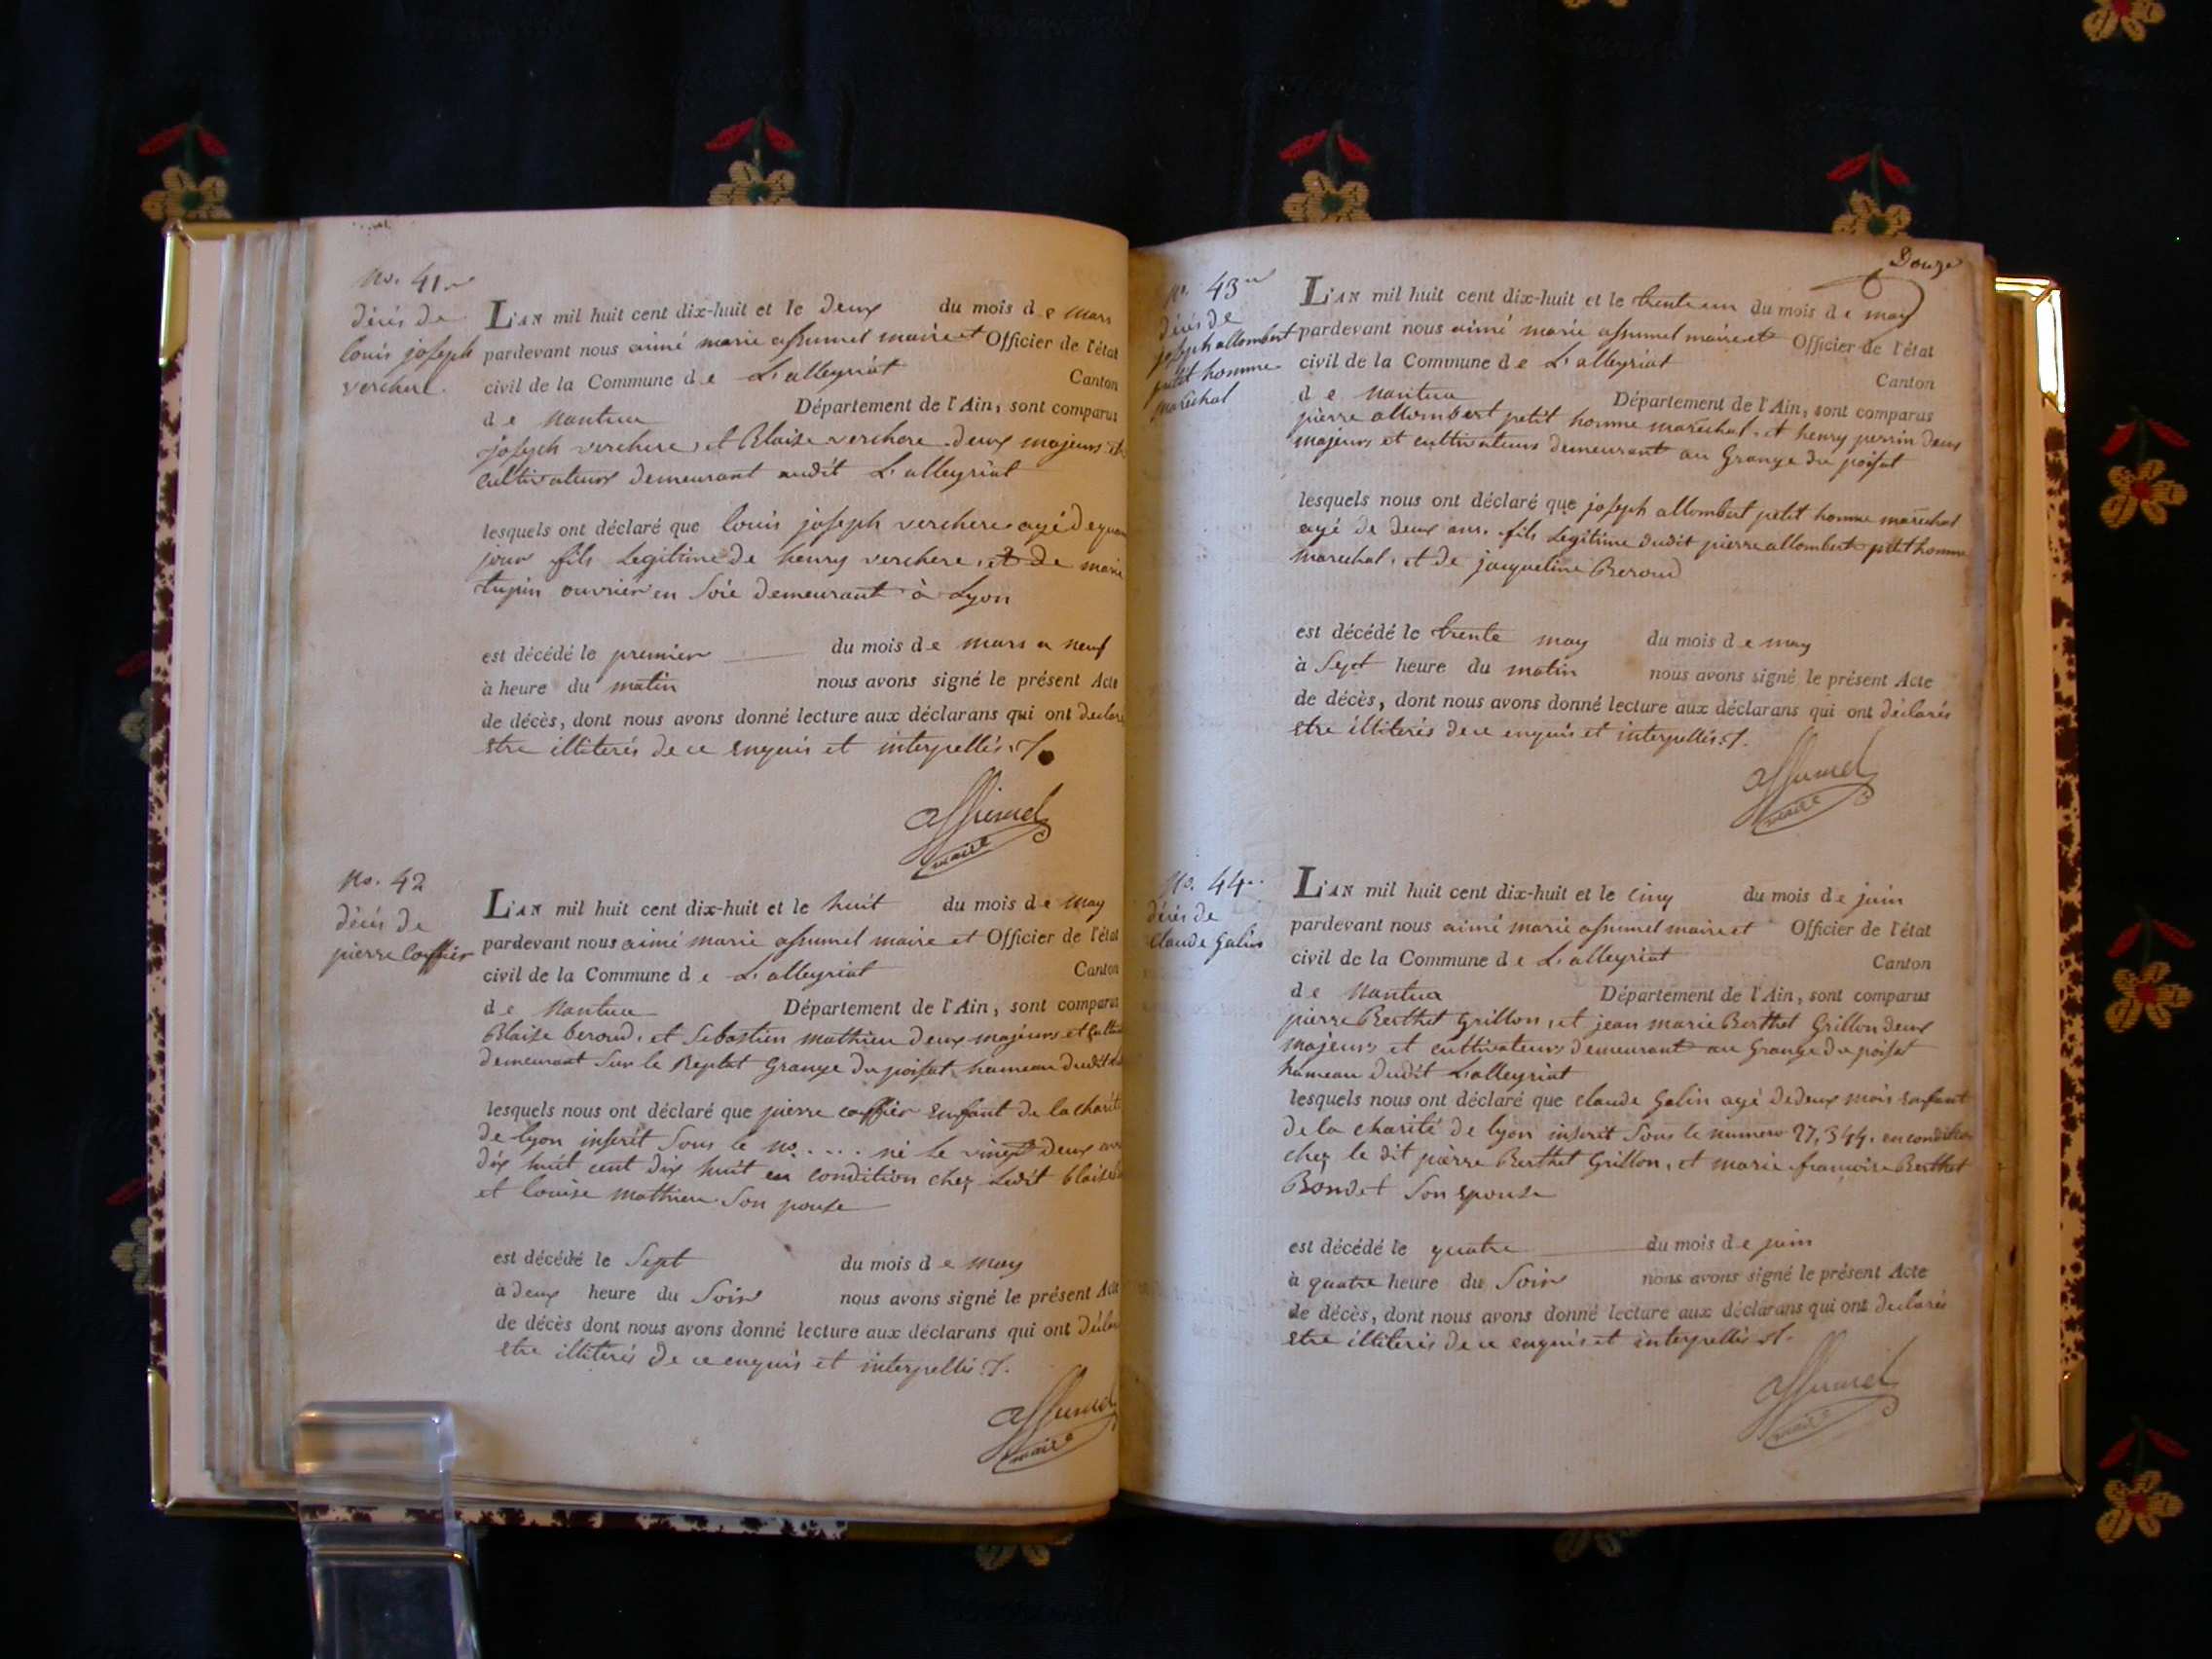 No. 41
décès de
louis joseph
verchere
L'AN mil huit cent dix-huit et le deux du mois de mars
pardevant nous aimé marie assumel maire et Officier de l'état
civil de la Commune de L'alleyriat Canton
de Nantua Département de l'Ain, sont comparus
joseph verchere, et Blaise verchere deux majeurs et
cultivateurs demeurant audit L'alleyriat
lesquels ont déclaré que louis joseph verchere agé de
jour fils Legitime de henry verchere, et de marie
tupin ouvrier en Soie demeurant à Lyon
est décédé le premier du mois de mars a neuf
à heure du matin nous avons signé le présent Acte
de décès, dont nous avons donné lecture aux déclarans qui ont declaré
etre illiterés de ce enquis et interpellés
assumel
maire
No. 42
décès de
pierre coffier
L'AN mil huit cent dix-huit et le huit du mois de May
pardevant nous aimé marie assumel maire et Officier de l'état
civil de la Commune de L'alleyriat Canton
de Nantua Département de l'Ain, sont comparus
Blaise beroud, et Sebastien mathieu deux majeurs et
demeurant Sur le Replat Grange du poisat hameau dudit
lesquels nous ont déclaré que pierre coffier enfant de la charité
de lyon inscrit Sous le no. .... né le vingt deux
dix huit cent dix huit en condition chez Ledit blaise
et louise mathieu Son pouse
est décédé le Sept du mois de May
à deux heure du Soir nous avons signé le présent Acte
de décès dont nous avons donné lecture aux déclarans qui ont
etre illiterés de ce enquis et interpellés
assumel
maire
Douze
No. 43
décès de
joseph allombert
petit homme
marechal
L'AN mil huit cent dix-huit et le trente un du mois de may
pardevant nous aimé marie assumel maire et Officier de l'état
civil de la Commune de L'alleyriat Canton
de Nantua Département de l'Ain, sont comparus
pierre allombert petit homme marechal, et henry perrin deux
majeurs et cultivateurs demeurant au Grange du poisat
lesquels nous ont déclaré que joseph allombert petit homme marechal
agé de deux ans, fils Legitime dudit pierre allombert petit homme
marechal, et de jacqueline Beroud
est décédé le trente may du mois de may
à Sept heure du matin nous avons signé le présent Acte
de décès, dont nous avons donné lecture aux déclarans qui ont déclarés
etre illiterés de ce enquis et interpellés
assumel
maire
No. 44
décès de
claude Galin
L'AN mil huit cent dix-huit et le cinq du mois de juin
pardevant nous aimé marie assumel maire et Officier de l'état
civil de la Commune de L'alleyriat Canton
de Nantua Département de l'Ain, sont comparus
pierre Berthet Grillon, et jean marie Berthet Grillon deux
majeurs et cultivateurs demeurant au Grange du poisat
hameau dudit L'alleyriat
lesquels nous ont déclaré que claude Galin agé de deux mois enfant
de la charité de lyon inscrit Sous le numero 27,344. en condition
chez le dit pierre Berthet Grillon, et marie françoise Berthet
Bondet Son epouse
est décédé le quatre du mois de juin
à quatre heure du Soir nous avons signé le présent Acte
de décès, dont nous avons donné lecture aux déclarans qui ont declarés
etre illiterés de ce enquis et interpellés
assumel
maire